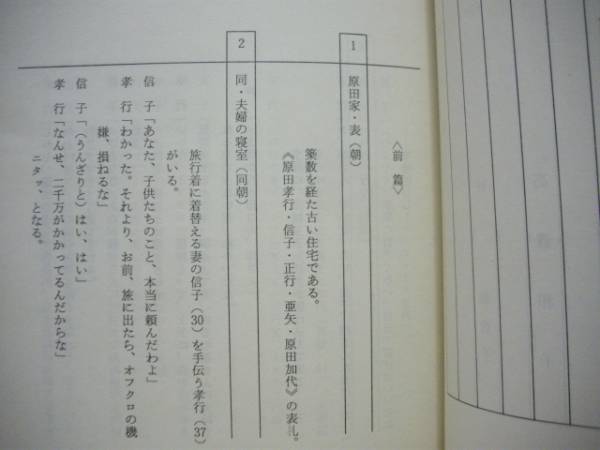 〈前篇〉
1 原田家・表(朝)
築数を経た古い住宅である。
《原田孝行・信子・正行・亜矢・原田加代》の表札。
2 同・夫婦の寝室(同朝)
旅行着に着替える妻の信子(30)を手伝う孝行(37)
がいる。
信子「あなた、子供たちのこと、本当に頼んだわよ」
孝行「わかった。それより、お前、旅に出たら、オフクロの機
嫌、損ねるな」
信子「(うんざりと)はい、はい」
孝行「なんせ、二千万がかかってるんだからな」
ニタッ、となる。